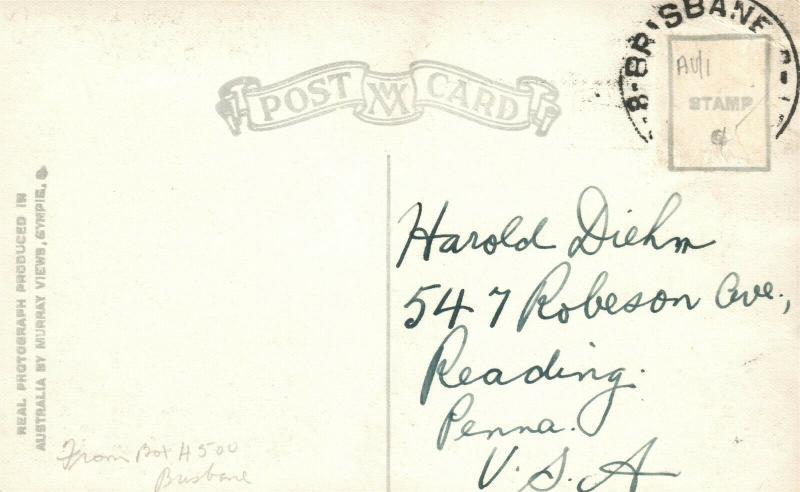 BRISBANE
AU/1
STAMP
POST CARD
REAL PHOTOGRAPH PRODUCED IN
AUSTRALIA BY MURRAY VIEWS, GYMPIE. Q
Harold Diehm
547 Robeson Ave.,
Reading.
Penna.
U.S.A
From Box H500
Brisbane